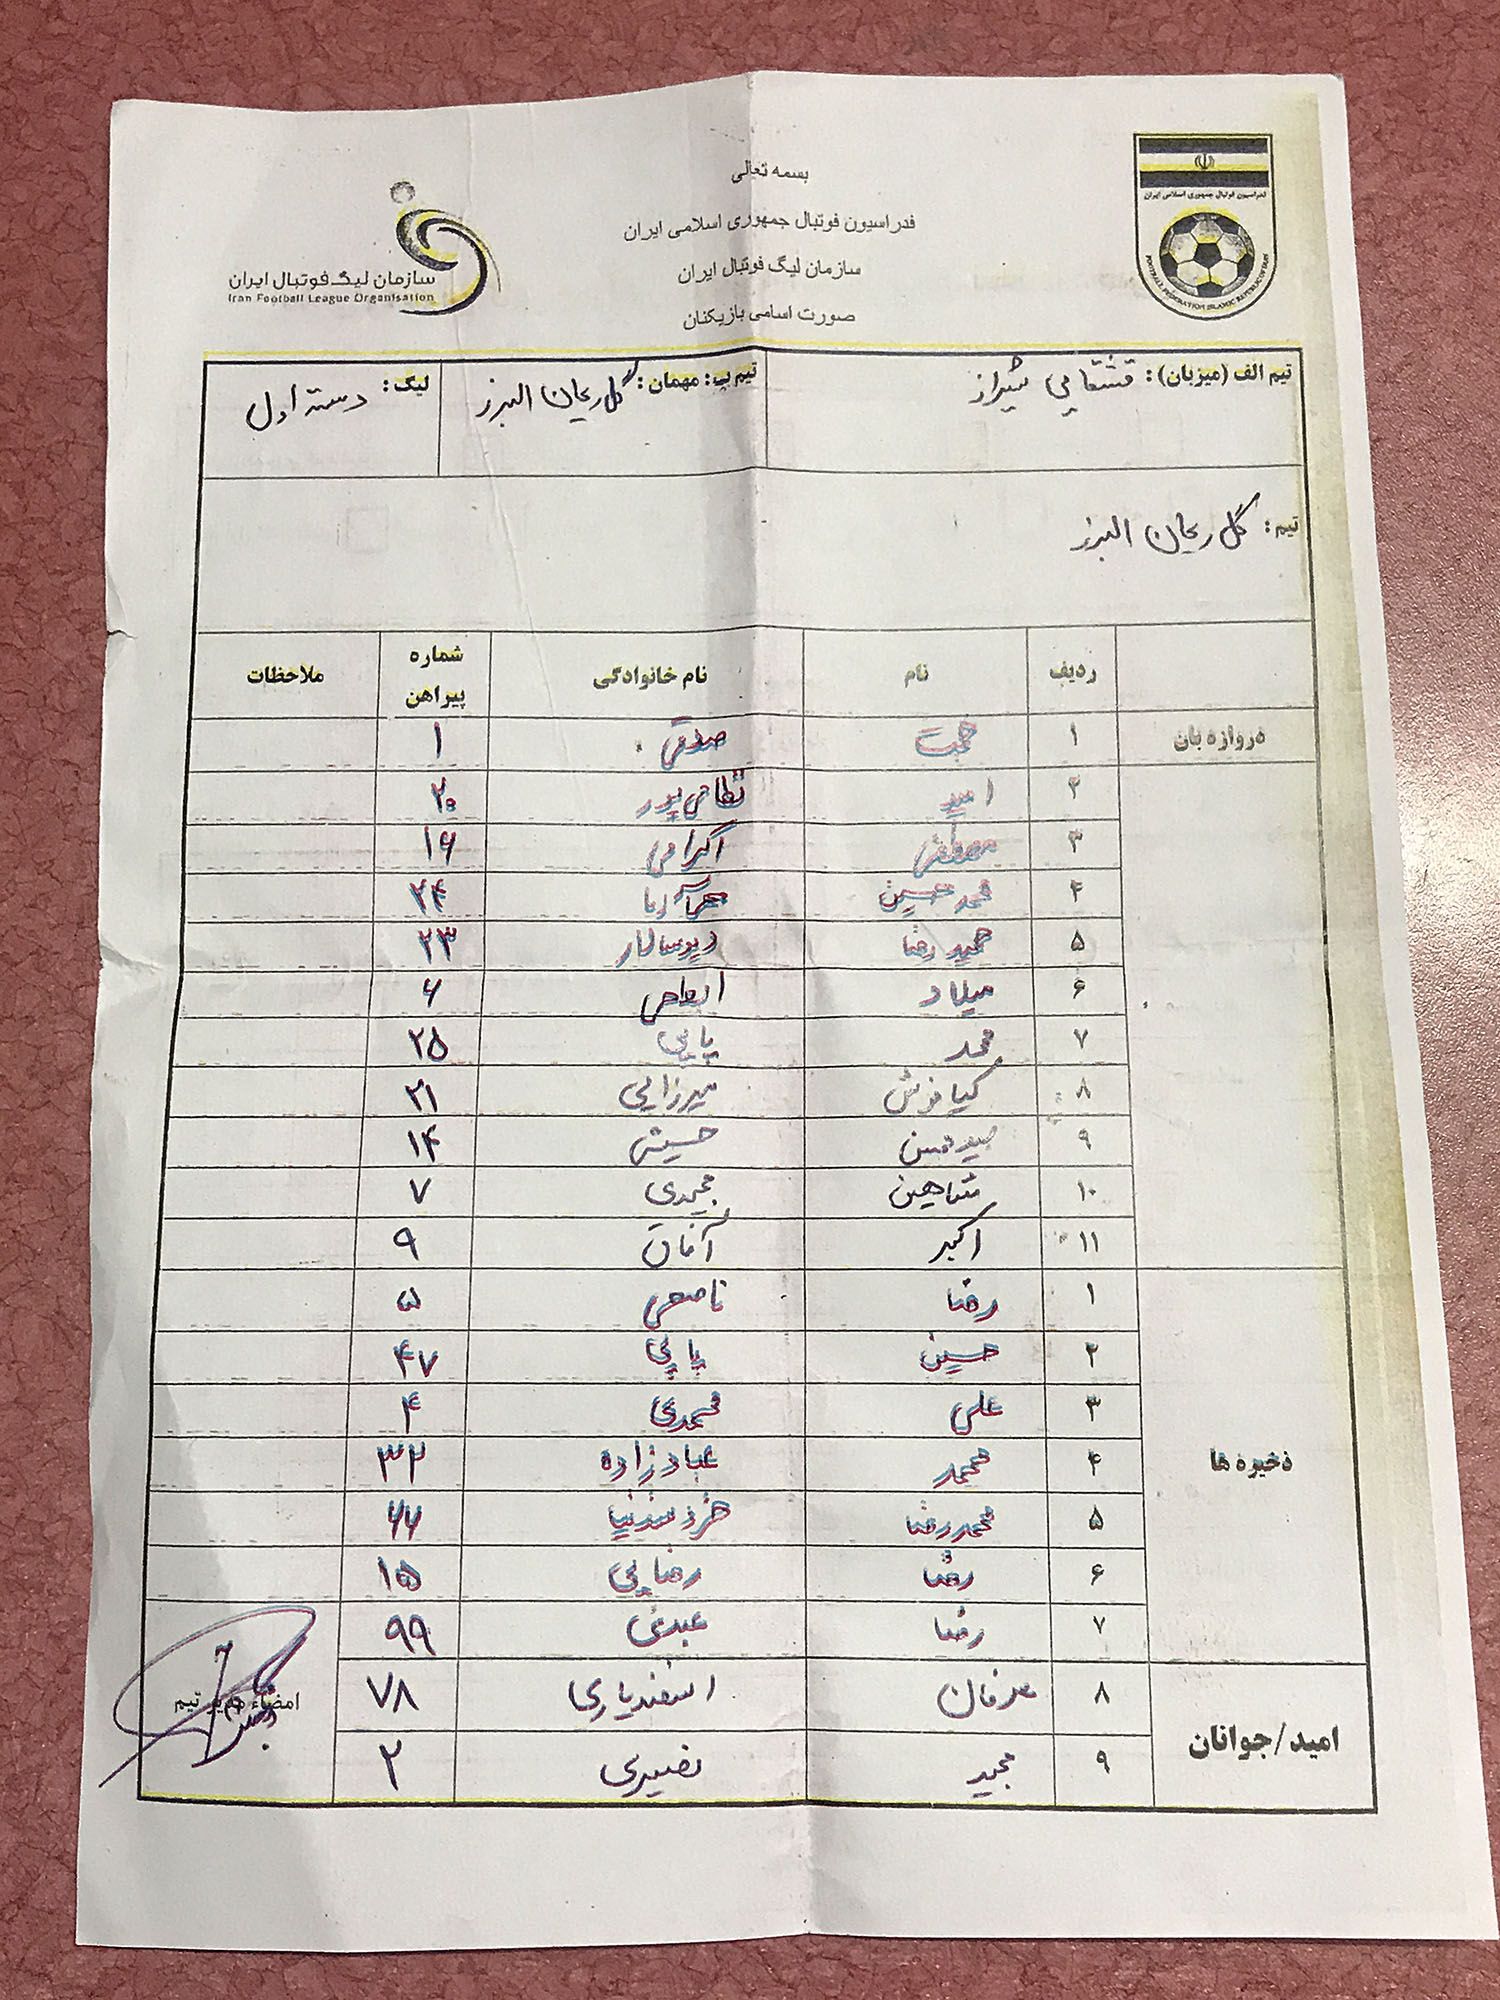 بسمه تعالی
فدراسیون فوتبال جمهوری اسلامی ایران
سازمان لیگ فوتبال ایران
صورت اسامی بازیکنان
فدراسیون فوتبال جمهوری اسلامی ایران
FOOTBALL FEDERATION ISLAMIC REPUBLIC OF IRAN
سازمان لیگ فوتبال ایران
Iran Football League Organisation
تیم الف (میزبان): قشقایی شیراز تیم ب: مهمان: گل ریحان البرز لیگ: دسته اول
تیم: گل ریحان البرز
ردیف نام نام خانوادگی شماره پیراهن ملاحظات
دروازه بان ۱ حجت صدقی ۱
۲ امید نظامی پور ۲۰
۳ مصطفی اکرامی ۱۶
۴ محمد حسین مهرآزما ۲۴
۵ حمید رضا دیوسالار ۲۳
۶ میلاد ۶
۷ محمد پاپی ۲۵
۸ کیانوش میرزایی ۲۱
۹ حسینی ۱۴
۱۰ شاهین مجیدی ۷
۱۱ اکبر آفاق ۹
ذخیره ها
۱ رضا ناصحی ۵
۲ حسین پاپی ۴۷
۳ علی محمدی ۴
۴ محمد عبادزاده ۳۲
۵ محمدرضا خردمندنیا ۶۶
۶ رضا رضایی ۱۵
۷ رضا عبدی ۹۹
امید/جوانان
۸ عرفان اسفندیاری ۷۸
۹ مجید نصیری ۲
امضاء مدیر تیم